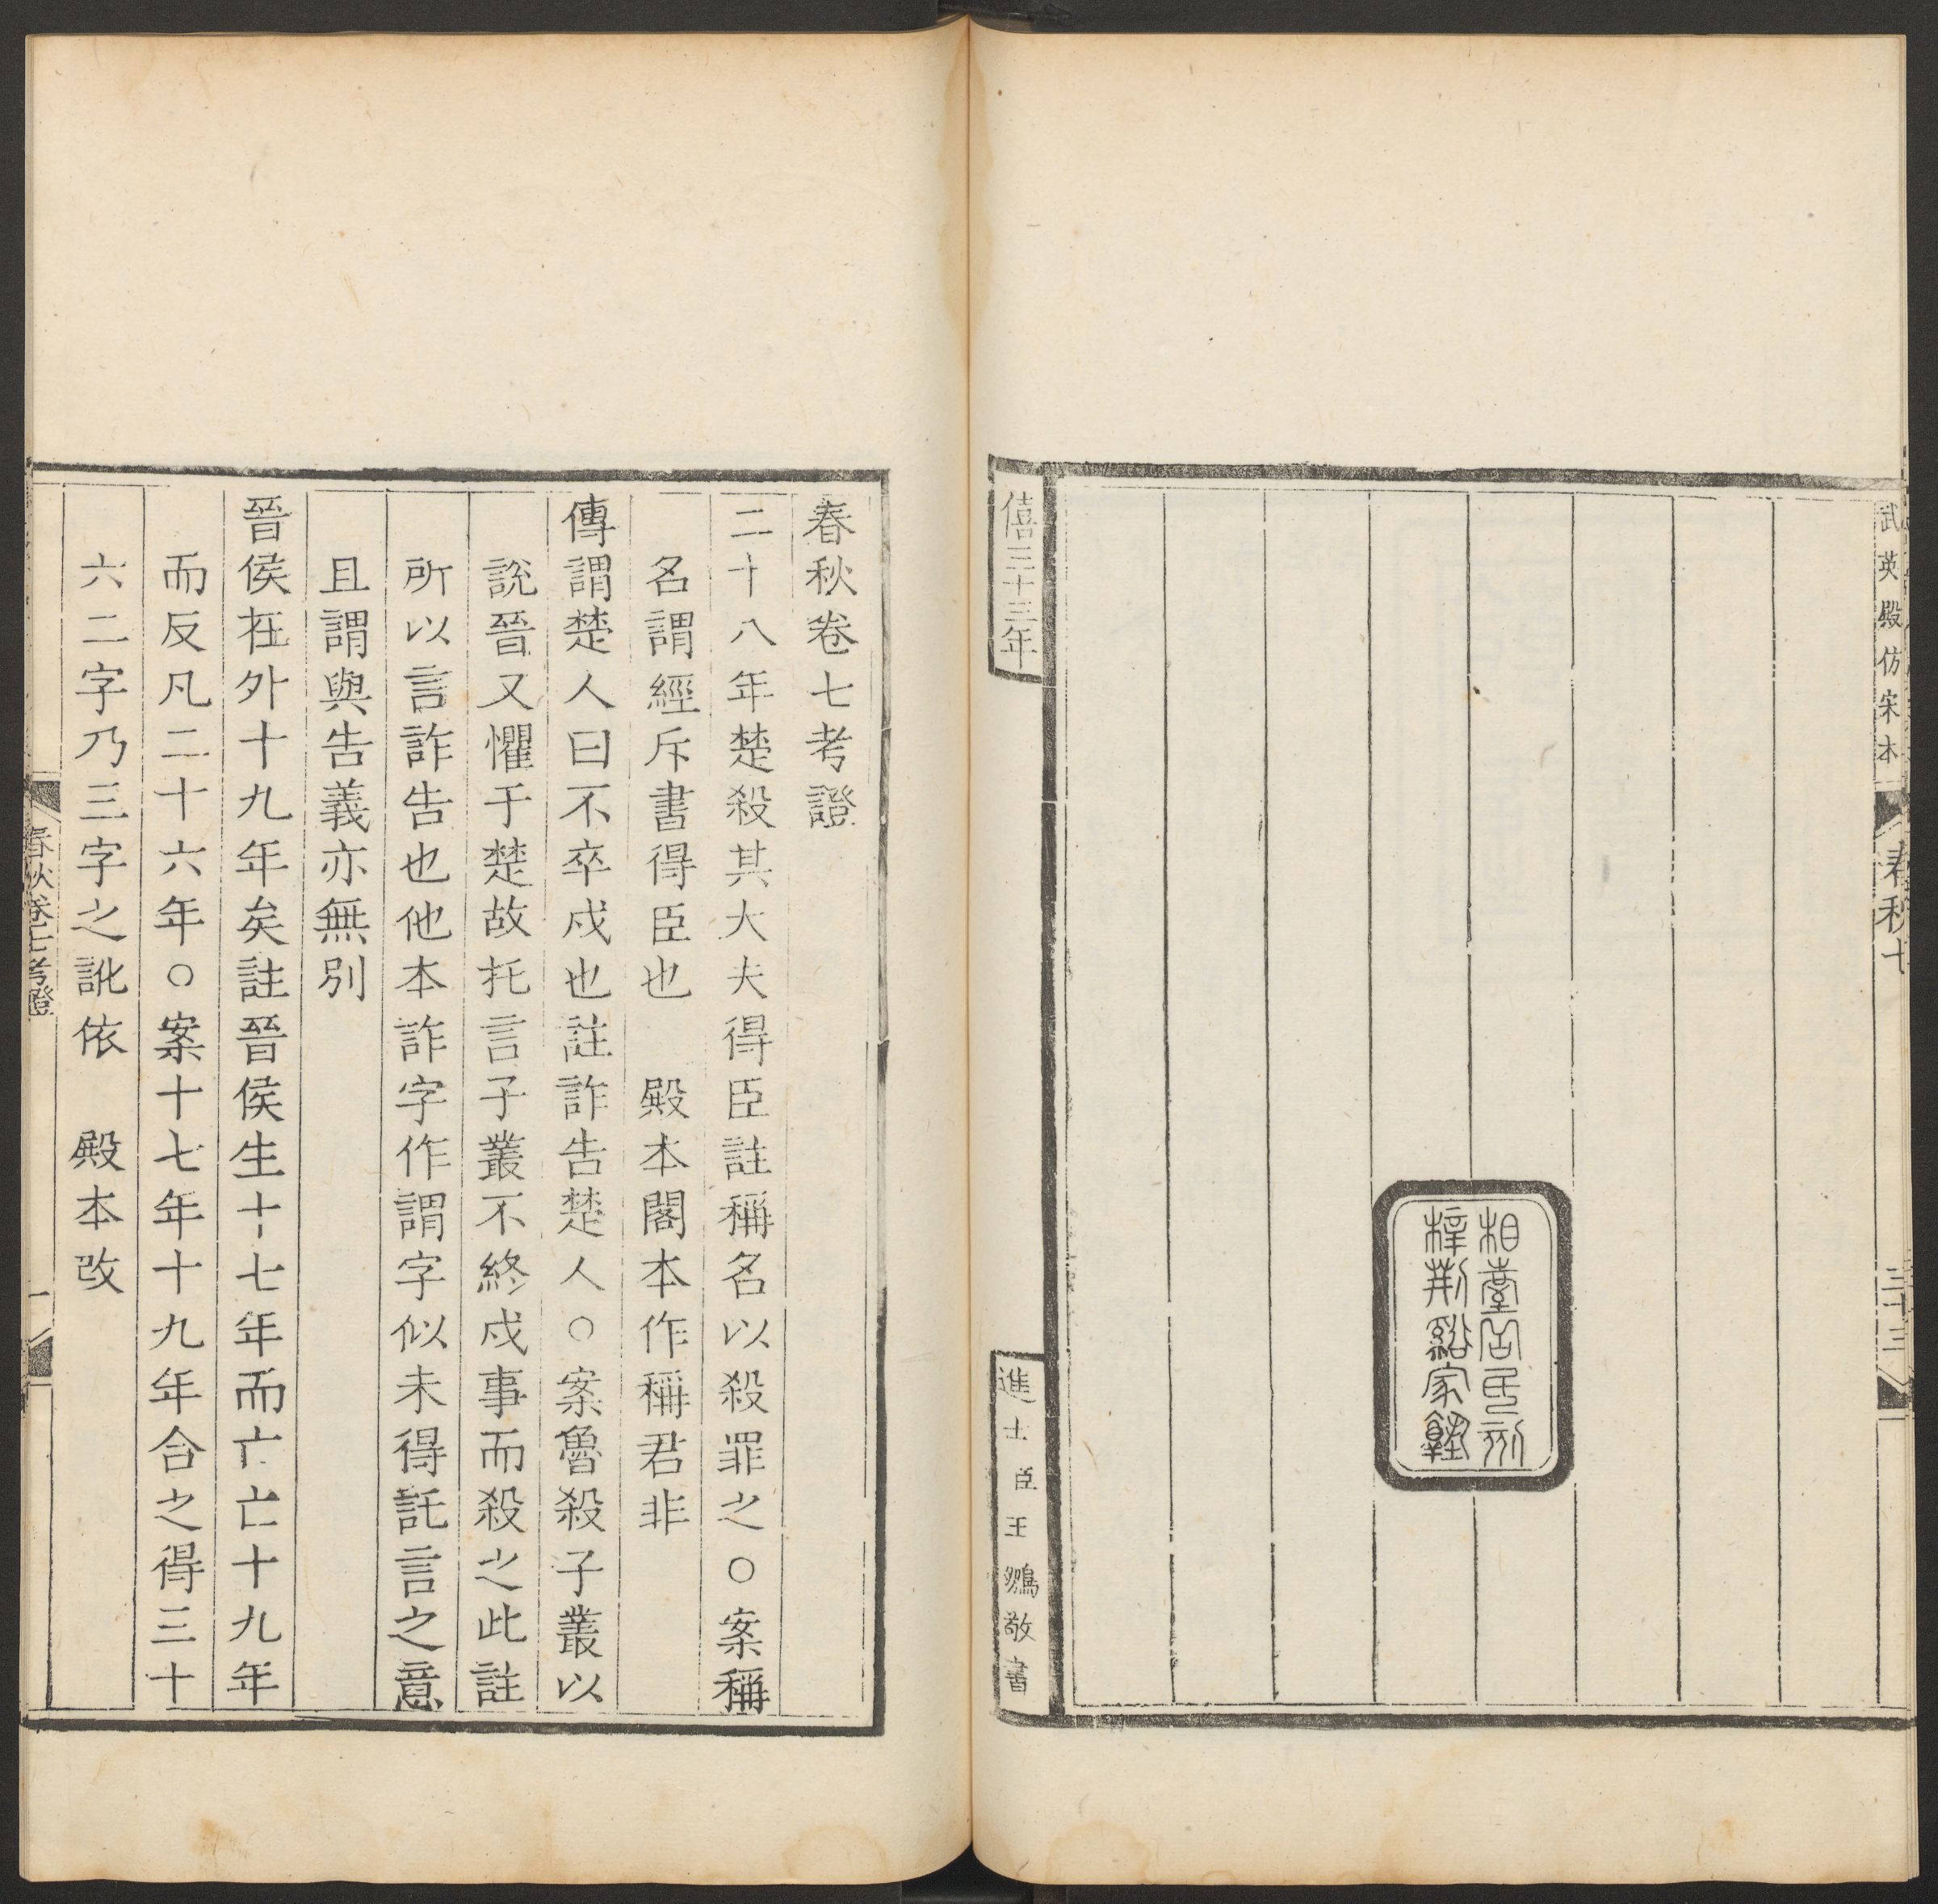 武英殿仿宋本
春秋七
三十三
相臺岳氏刻
梓荆谿家塾
僖三十三年
進士臣王鵕敬書
春秋卷七考證
二十八年楚殺其大夫得臣註稱名以殺罪之○案稱
名謂經斥書得臣也　殿本閣本作稱君非
傳謂楚人曰不卒戍也註詐告楚人○案魯殺子叢以
說晉又懼于楚故托言子叢不終戍事而殺之此註
所以言詐告也他本詐字作謂字似未得託言之意
且謂與告義亦無別
晉侯在外十九年矣註晉侯生十七年而亡亡十九年
而反凡二十六年○案十七年十九年合之得三十
六二字乃三字之訛依　殿本改
春秋卷七考證
一